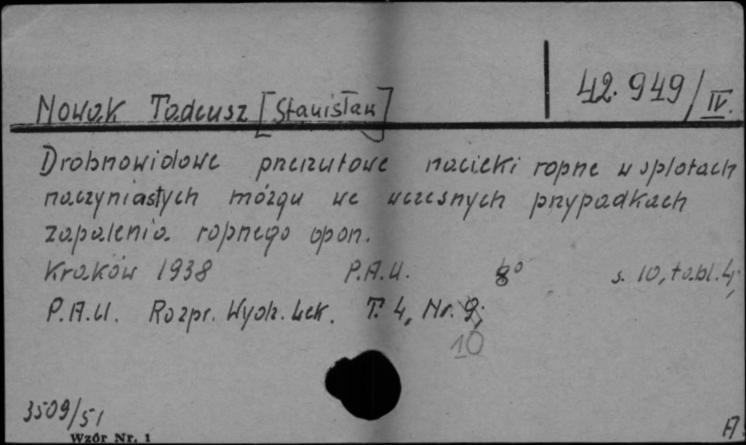 42.949/IV.
Nowak Tadeusz [Stanisław]
Drobnowidowe przerzutowe nacieki ropne w splotach
naczyniastych mózgu we wczesnych przypadkach
zapalenia ropnego opon.
Kraków 1938 P.A.U. 8° s. 10, tabl. 4,
P.A.U. Rozpr. Wydz. Lek. T. 4, Nr. 9;
10
3509/51
Wzór Nr. 1
A